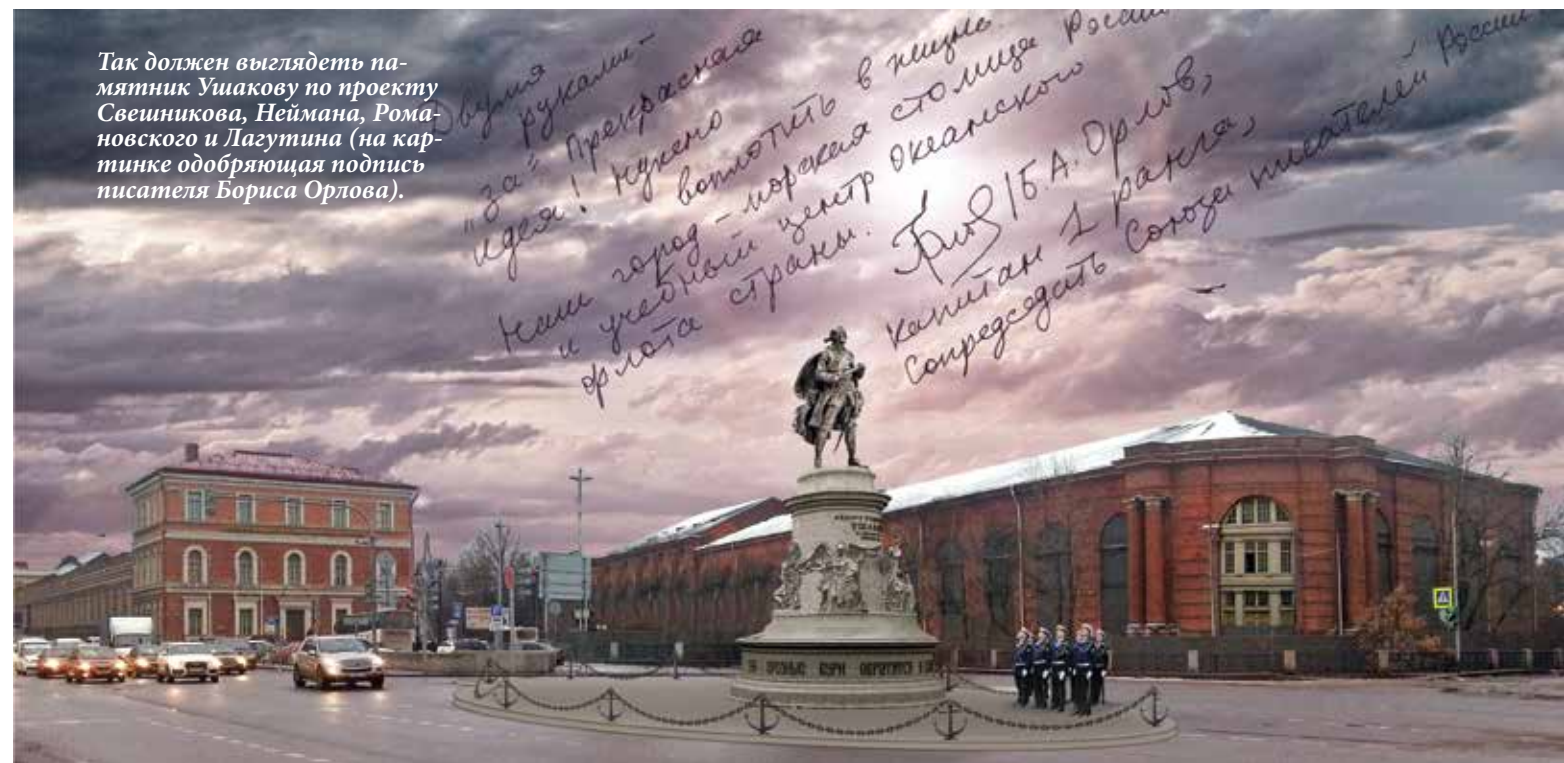 Так должен выглядеть па-
мятник Ушакову по проекту
Свешникова, Неймана, Рома-
новского и Лагутина (на кар-
тинке одобряющая подпись
писателя Бориса Орлова).
Двумя
руками -
"за" Прекрасная
идея! Нужно
воплотить в жизнь.
Наш город - морская столица России
и учебный центр океанского
флота страны.
/Б А. Орлов,
капитан 1 ранга,
Сопредседатель Союза писателей России
ГРОЗНЫЕ БУРИ ОБРАТЯТСЯ К